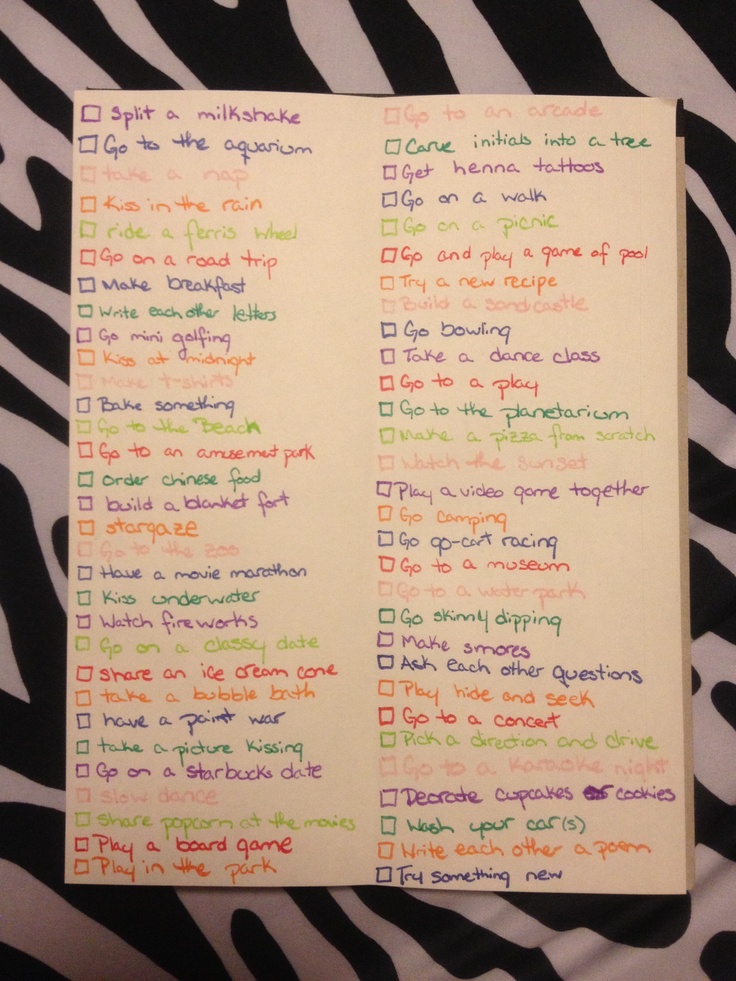 Split a milkshake
Go to the aquarium
take a nap
Kiss in the rain
ride a ferris wheel
Go on a road trip
Make breakfast
Write each other letters
Go mini golfing
Kiss at midnight
Make t-shirts
Bake something
Go to the Beach
Go to an amusement park
Order chinese food
build a blanket fort
stargaze
Go to the zoo
Have a movie marathon
Kiss underwater
Watch fireworks
Go on a classy date
share an ice cream cone
take a bubble bath
have a paint war
take a picture kissing
Go on a starbucks date
slow dance
share popcorn at the movies
Play a board game
Play in the park
Go to an arcade
Carve initials into a tree
Get henna tattoos
Go on a walk
Go on a picnic
Go and play a game of pool
Try a new recipe
Build a sandcastle
Go bowling
Take a dance class
Go to a play
Go to the planetarium
Make a pizza from scratch
Watch the sunset
Play a video game together
Go camping
Go go-cart racing
Go to a museum
Go to a water park
Go skinny dipping
Make smores
Ask each other questions
Play hide and seek
Go to a concert
Pick a direction and drive
Go to a Karaoke night
Decorate cupcakes or cookies
Wash your car(s)
Write each other a poem
Try something new